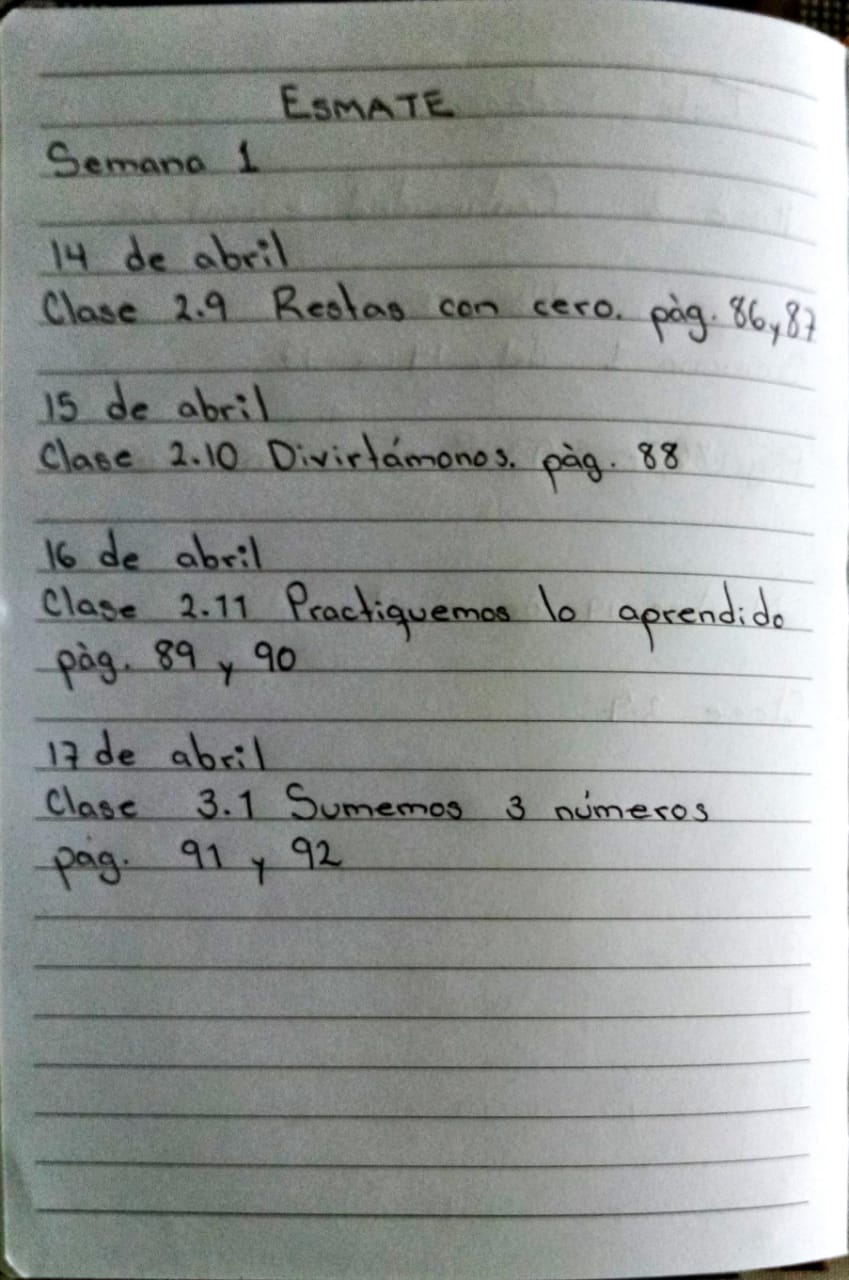 ESMATE
Semana 1
14 de abril
Clase 2.9 Restas con cero. pàg. 86 y 87
15 de abril
Clase 2.10 Divirtámonos. pàg. 88
16 de abril
Clase 2.11 Practiquemos lo aprendido
pàg. 89 y 90
17 de abril
Clase 3.1 Sumemos 3 números
pág. 91 y 92